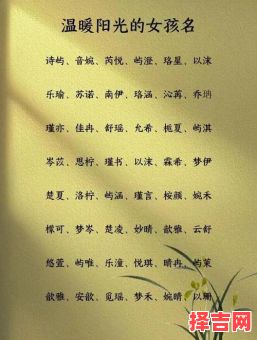 温暖阳光的女孩名
诗屿、音婉、芮悦、屿澄、珞星、以沫
乐瑜、苏诺、南伊、珞涵、沁苒、乔玥
瑾亦、佳冉、舒瑶、允希、栀夏、屿淇
岑苡、思柠、瑾书、以沫、霖希、梦伊
楚夏、洛柠、屿涵、瑾言、桉颜、婉禾
檬可、梦岑、楚凌、妙晴、歆雅、云舒
悠萱、屿唯、乐潼、悦琪、晴冉、屿茉
歆雅、安歆、觅瑶、梦禾、婉晴、以珊
择吉网